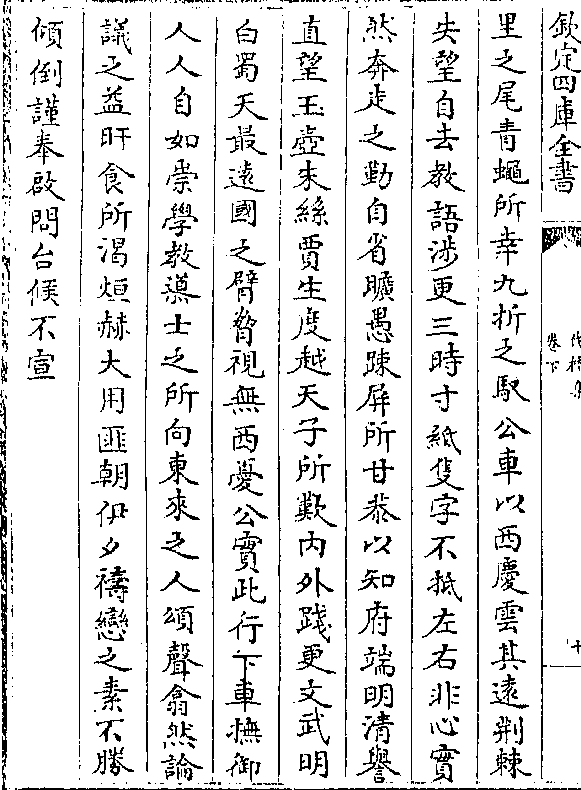 欽定四庫全書
卷下
十
里之尾青蠅所幸九折之馭公車以西慶雲其遠荆棘
失望自去教語涉更三時寸紙隻字不抵左右非心實
然奔走之勤自省曠愚踈屏所甘恭以知府端明清譽
直望玉壺朱絲賈生度越天子所歎内外踐更文武明
白蜀天最遠國之臂脅視無西憂公實此行下車撫御
人人自如崇學教導士之所向東來之人頌聲翕然論
議之益旰食所渴烜赫大用匪朝伊夕禱戀之素不勝
傾倒謹奉啟問台候不宣